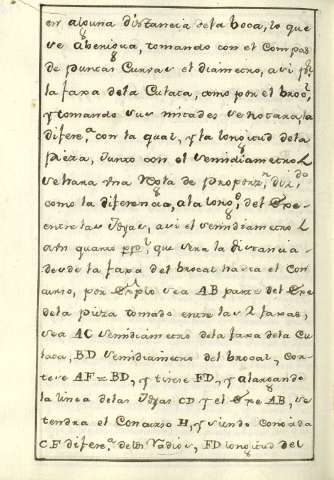 en alguna distancia dela boca, lo que
se abenigua, tomando con el Compas
de puntas Curvas el diametro, asi por
la faxa dela Culata, como por el broc.l
y tomando sus mitades se notara la
difere.a con la qual, y la longitud dela
pieza, Junto con el semidiametro
se hara vna Regla de proporz.n
como la diferencia, ala long.d del Exe
entre las Joyas, asi el semidiametro
aun quarto pp.l que sera la distancia
desde la faxa del brocal hasta el Con-
curso, por Explo sea AB parte del Exe
dela pieza tomado entre las 2 faxas,
sea AC semidiametro dela faxa dela Cu
lata, BD semidiametro del brocal, Cor-
tese AF = BD, y tirese FD, y alargando
la linea delas Joyas CD y el Exe AB, se
tendra el Concurso H, y siendo Conocida
CF difere.a delos Radios, FD longitud del